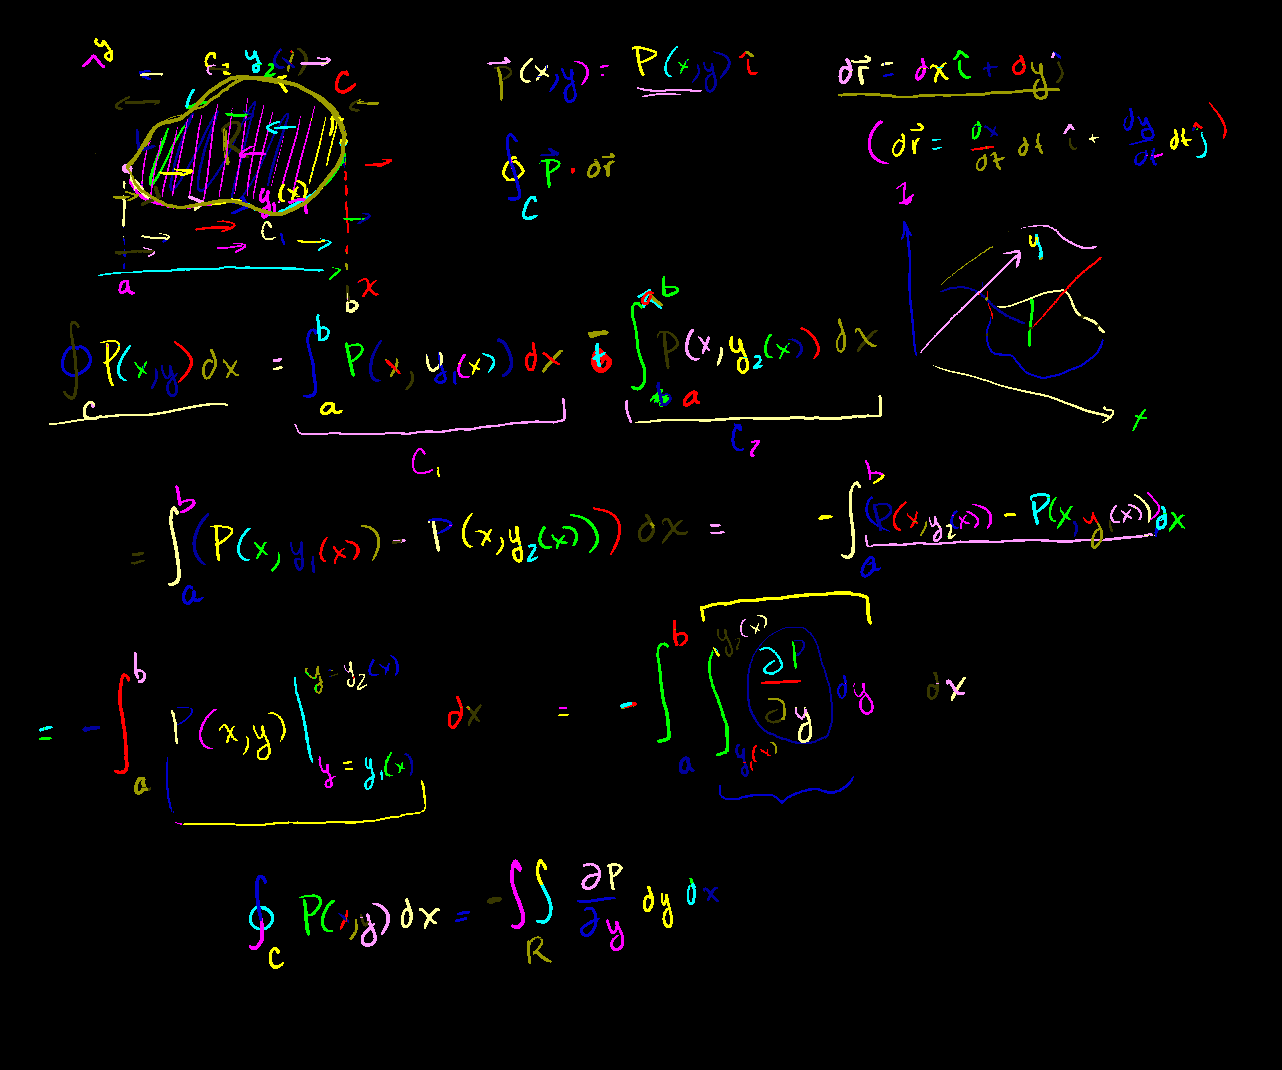 y
C₂ y₂(x)
C
R
y₁(x)
C₁
a
b
x
P⃗(x,y) = P(x,y) î
∮_C P⃗ · dr⃗
dr⃗ = dx î + dy ĵ
(dr⃗ = dx/dt dt î + dy/dt dt ĵ)
z
y
x
∮_C P(x,y) dx = ∫_a^b P(x, y₁(x)) dx - ∫_a^b P(x, y₂(x)) dx
C₁
C₂
= ∫_a^b (P(x, y₁(x)) - P(x, y₂(x))) dx = - ∫_a^b (P(x, y₂(x)) - P(x, y₁(x))) dx
= - ∫_a^b P(x,y) |_{y = y₁(x)}^{y = y₂(x)} dx = - ∫_a^b ∫_{y₁(x)}^{y₂(x)} ∂P/∂y dy dx
∮_C P(x,y) dx = - ∬_R ∂P/∂y dy dx